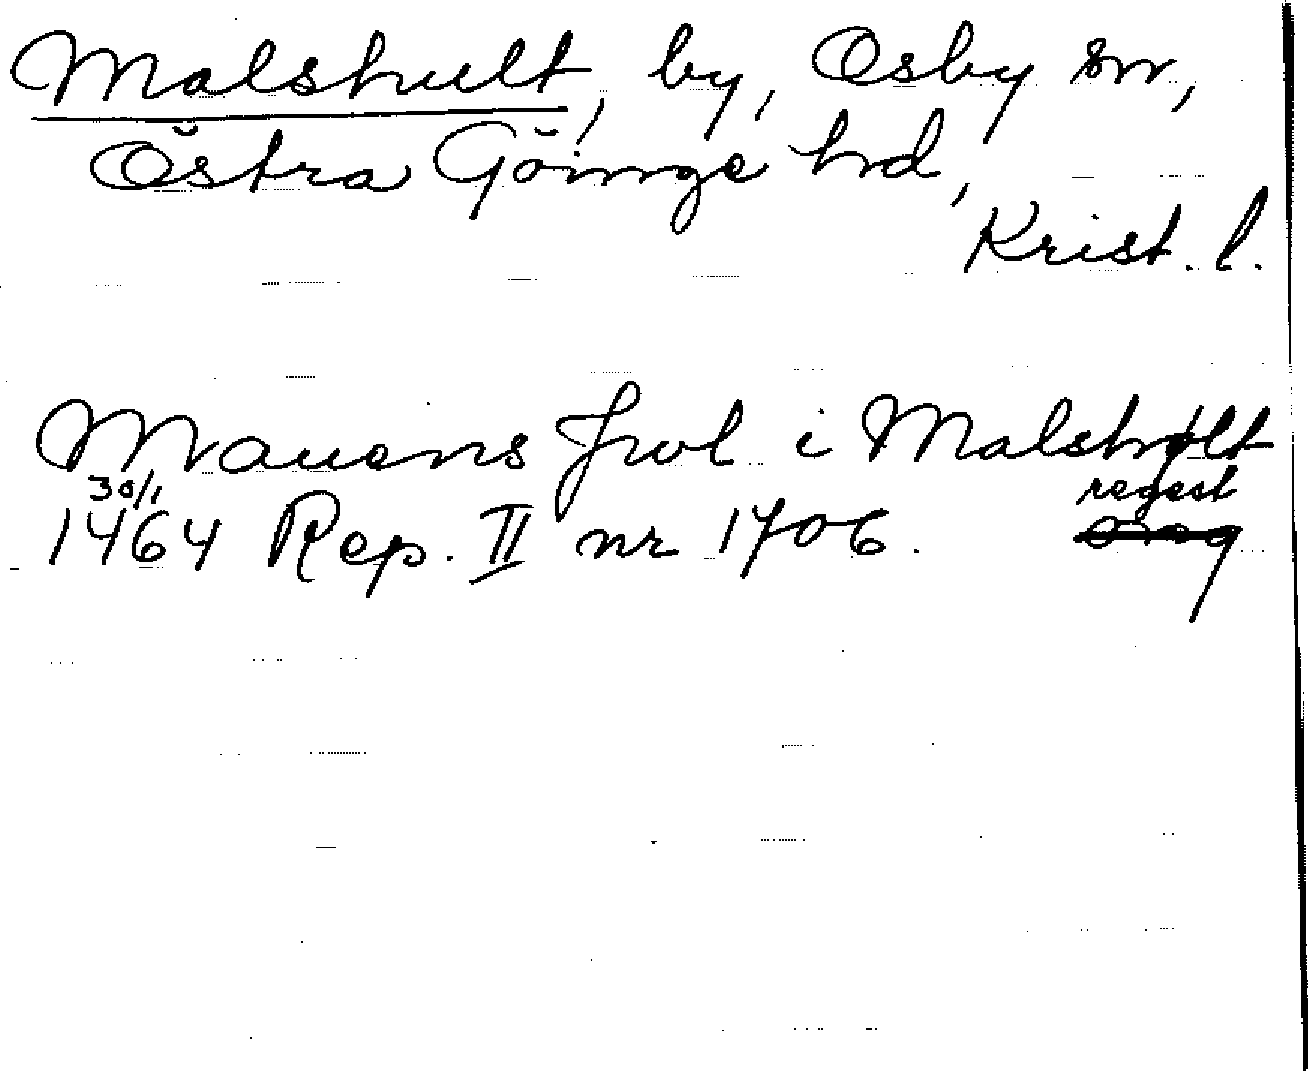 Malshult, by, Osby sn,
Östra Göinge hd,
Krist. l.
Mauens Jwl i Malshølt
30/1 regest
1464 Rep. II nr 1706. orig